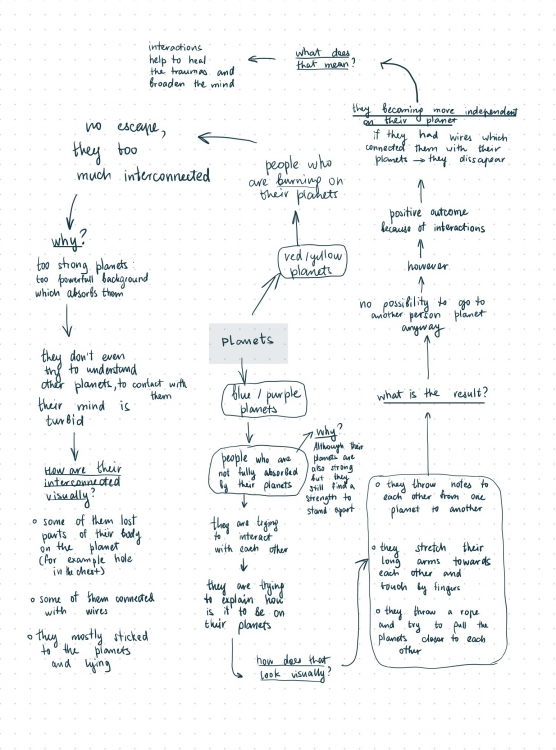 interactions
help to heal
the traumas and
broaden the mind
what does
that mean?
they becoming more independent
on their planet
if they had wires which
connected them with their
planets → they dissapear
no escape,
they too
much interconnected
people who
are burning on
their planets
positive outcome
because of interactions
however
no possibility to go to
another person planet
anyway
why?
too strong planets:
too powerfull background
which absorbs them
red/yellow
planets
planets
they don't even
try to understand
other planets, to contact with
them
their mind is
turbid
blue / purple
planets
what is the result?
people who are
not fully absorbed
by their planets
why?
Although their
planets are
also strong
but they
still find a
strength to
stand apart
How are their
interconnected
visually?
some of them lost
parts of their body
on the planet
(for example hole
in the chest)
some of them connected
with wires
they mostly sticked
to the planets
and lying
they are trying
to interact
with each other
they are trying
to explain how
is it to be on
their planets
how does that
look visually?
they throw notes to
each other from one
planet to another
they stretch their
long arms towards
each other and
touch by fingers
they throw a rope
and try to pull the
planets closer to each
other